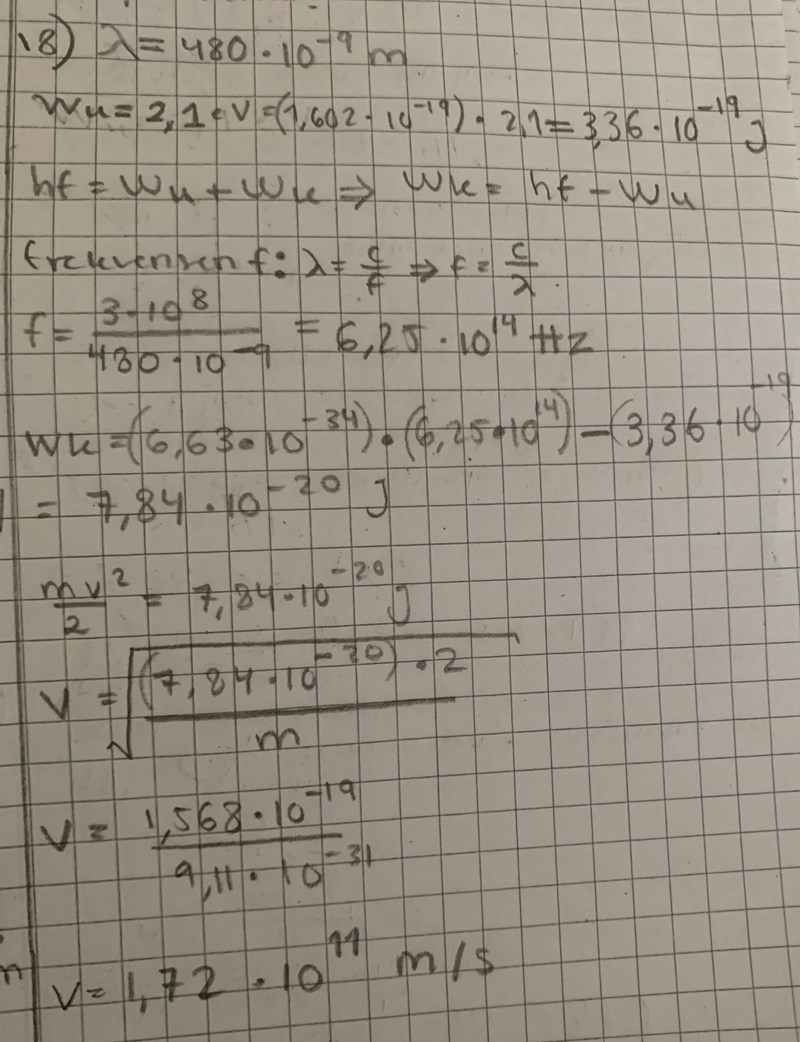 18) λ = 480 · 10⁻⁹ m
Wu = 2,1 eV = (1,602 · 10⁻¹⁹) · 2,1 = 3,36 · 10⁻¹⁹ J
hf = Wu + Wk ⇒ Wk = hf - Wu
frekvensen f: λ = c/f ⇒ f = c/λ
f = 3·10⁸ / 480 · 10⁻⁹ = 6,25 · 10¹⁴ Hz
Wk = (6,63 · 10⁻³⁴) · (6,25 · 10¹⁴) - (3,36 · 10⁻¹⁹)
= 7,84 · 10⁻²⁰ J
mv²/2 = 7,84 · 10⁻²⁰ J
v = √((7,84 · 10⁻²⁰) · 2 / m)
v = 1,568 · 10⁻¹⁹ / 9,11 · 10⁻³¹
n
v = 1,72 · 10¹¹ m/s